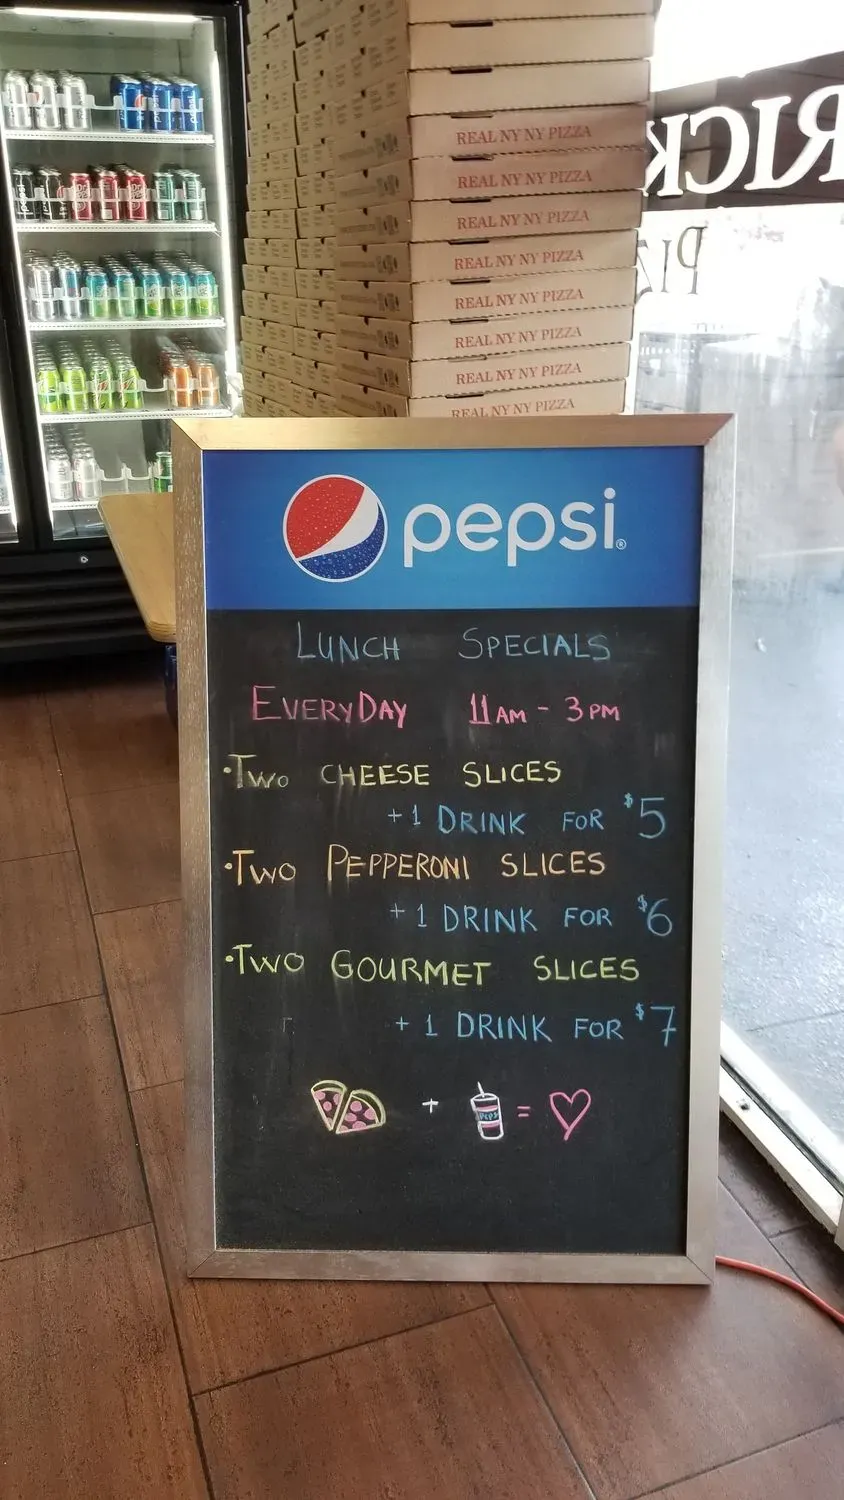 REAL NY NY PIZZA
REAL NY NY PIZZA
REAL NY NY PIZZA
REAL NY NY PIZZA
REAL NY NY PIZZA
REAL NY NY PIZZA
REAL NY NY PIZZA
REAL NY NY PIZZA
RICK
pepsi®
LUNCH SPECIALS
EVERYDAY 11AM - 3PM
• TWO CHEESE SLICES
+ 1 DRINK FOR $5
• TWO PEPPERONI SLICES
+ 1 DRINK FOR $6
• TWO GOURMET SLICES
+ 1 DRINK FOR $7
+ PEPSI =